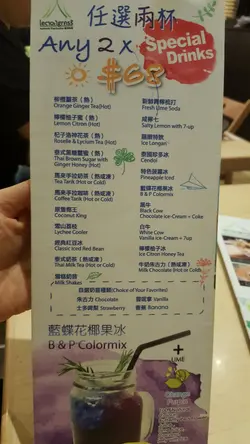 lemongrass
任選兩杯
Any 2 x
$68
Special
Drinks
桜橙薑茶（熱）
Orange Ginger Tea(Hot)
檸檬桔子蜜（熱）
Lemon Citren (Hot)
杞子洛神花茶（熱）
Roselle & Lycium Tea (Hot)
Thai Brown Sugar with
Ginger Honey (Hot)
馬來手拉奶茶（熱或凍）
Tea Tarik (Hot or Cold)
馬來手拉咖啡（熱或凍）
CoffeeTarik (Hot or Cold)
Coconut King
雪山荔枝
Lychee Cooler
經典紅豆冰
Classic Iced Red Bean
泰式奶茶（熱或凍）
Thai Milk Tea (Hot or Cold)
滑糖奶昔
Milk Shakes
新鮮青檸梳打
Fresh Lime Soda
咸檸七
Salty Lemon with 7-up
龍眼特飲
Iced Longan
Cendol
特色菠蘿冰
Pineapple Iced
藍蝶花椰果冰
B & P Colormix
黑牛
Black Cow
Chocolate Ice-Cream + Coke
白牛
White Cow
Vanilla Ice-Cream + 7up
檸檬桔子冰
Ice Citren Honey
牛奶朱古力（熱或凍）
Milk Chocolate (Hot or Cold)
自選奶昔種類(Choice of Your Favorites)
朱古力 Chocolate
雲呢拿 Vanilla
士多啤梨 Strawberry
香蕉 Banana
藍蝶花椰果冰
B & P Colormix
+
LIME
Change
Purple